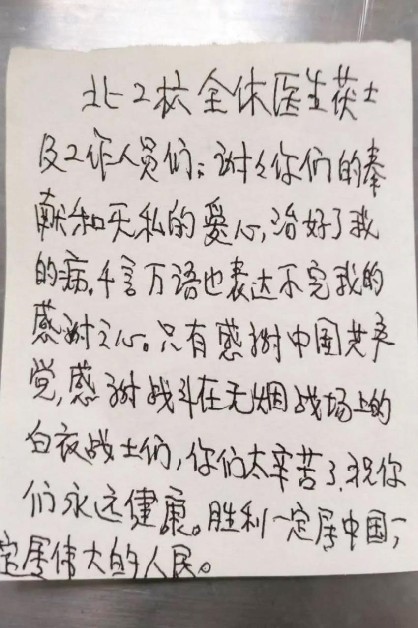 北2校全体医生茯士
及工作人员们：谢々你们的奉
献和无私的爱心，治好了我
的病，千言万语也表达不完我的
感谢之心。只有感谢中国共产
党，感谢战斗在无烟战场上的
白衣战士们，你们太辛苦了，祝你
们永远健康。胜利一定属中国，一
定属伟大的人民。